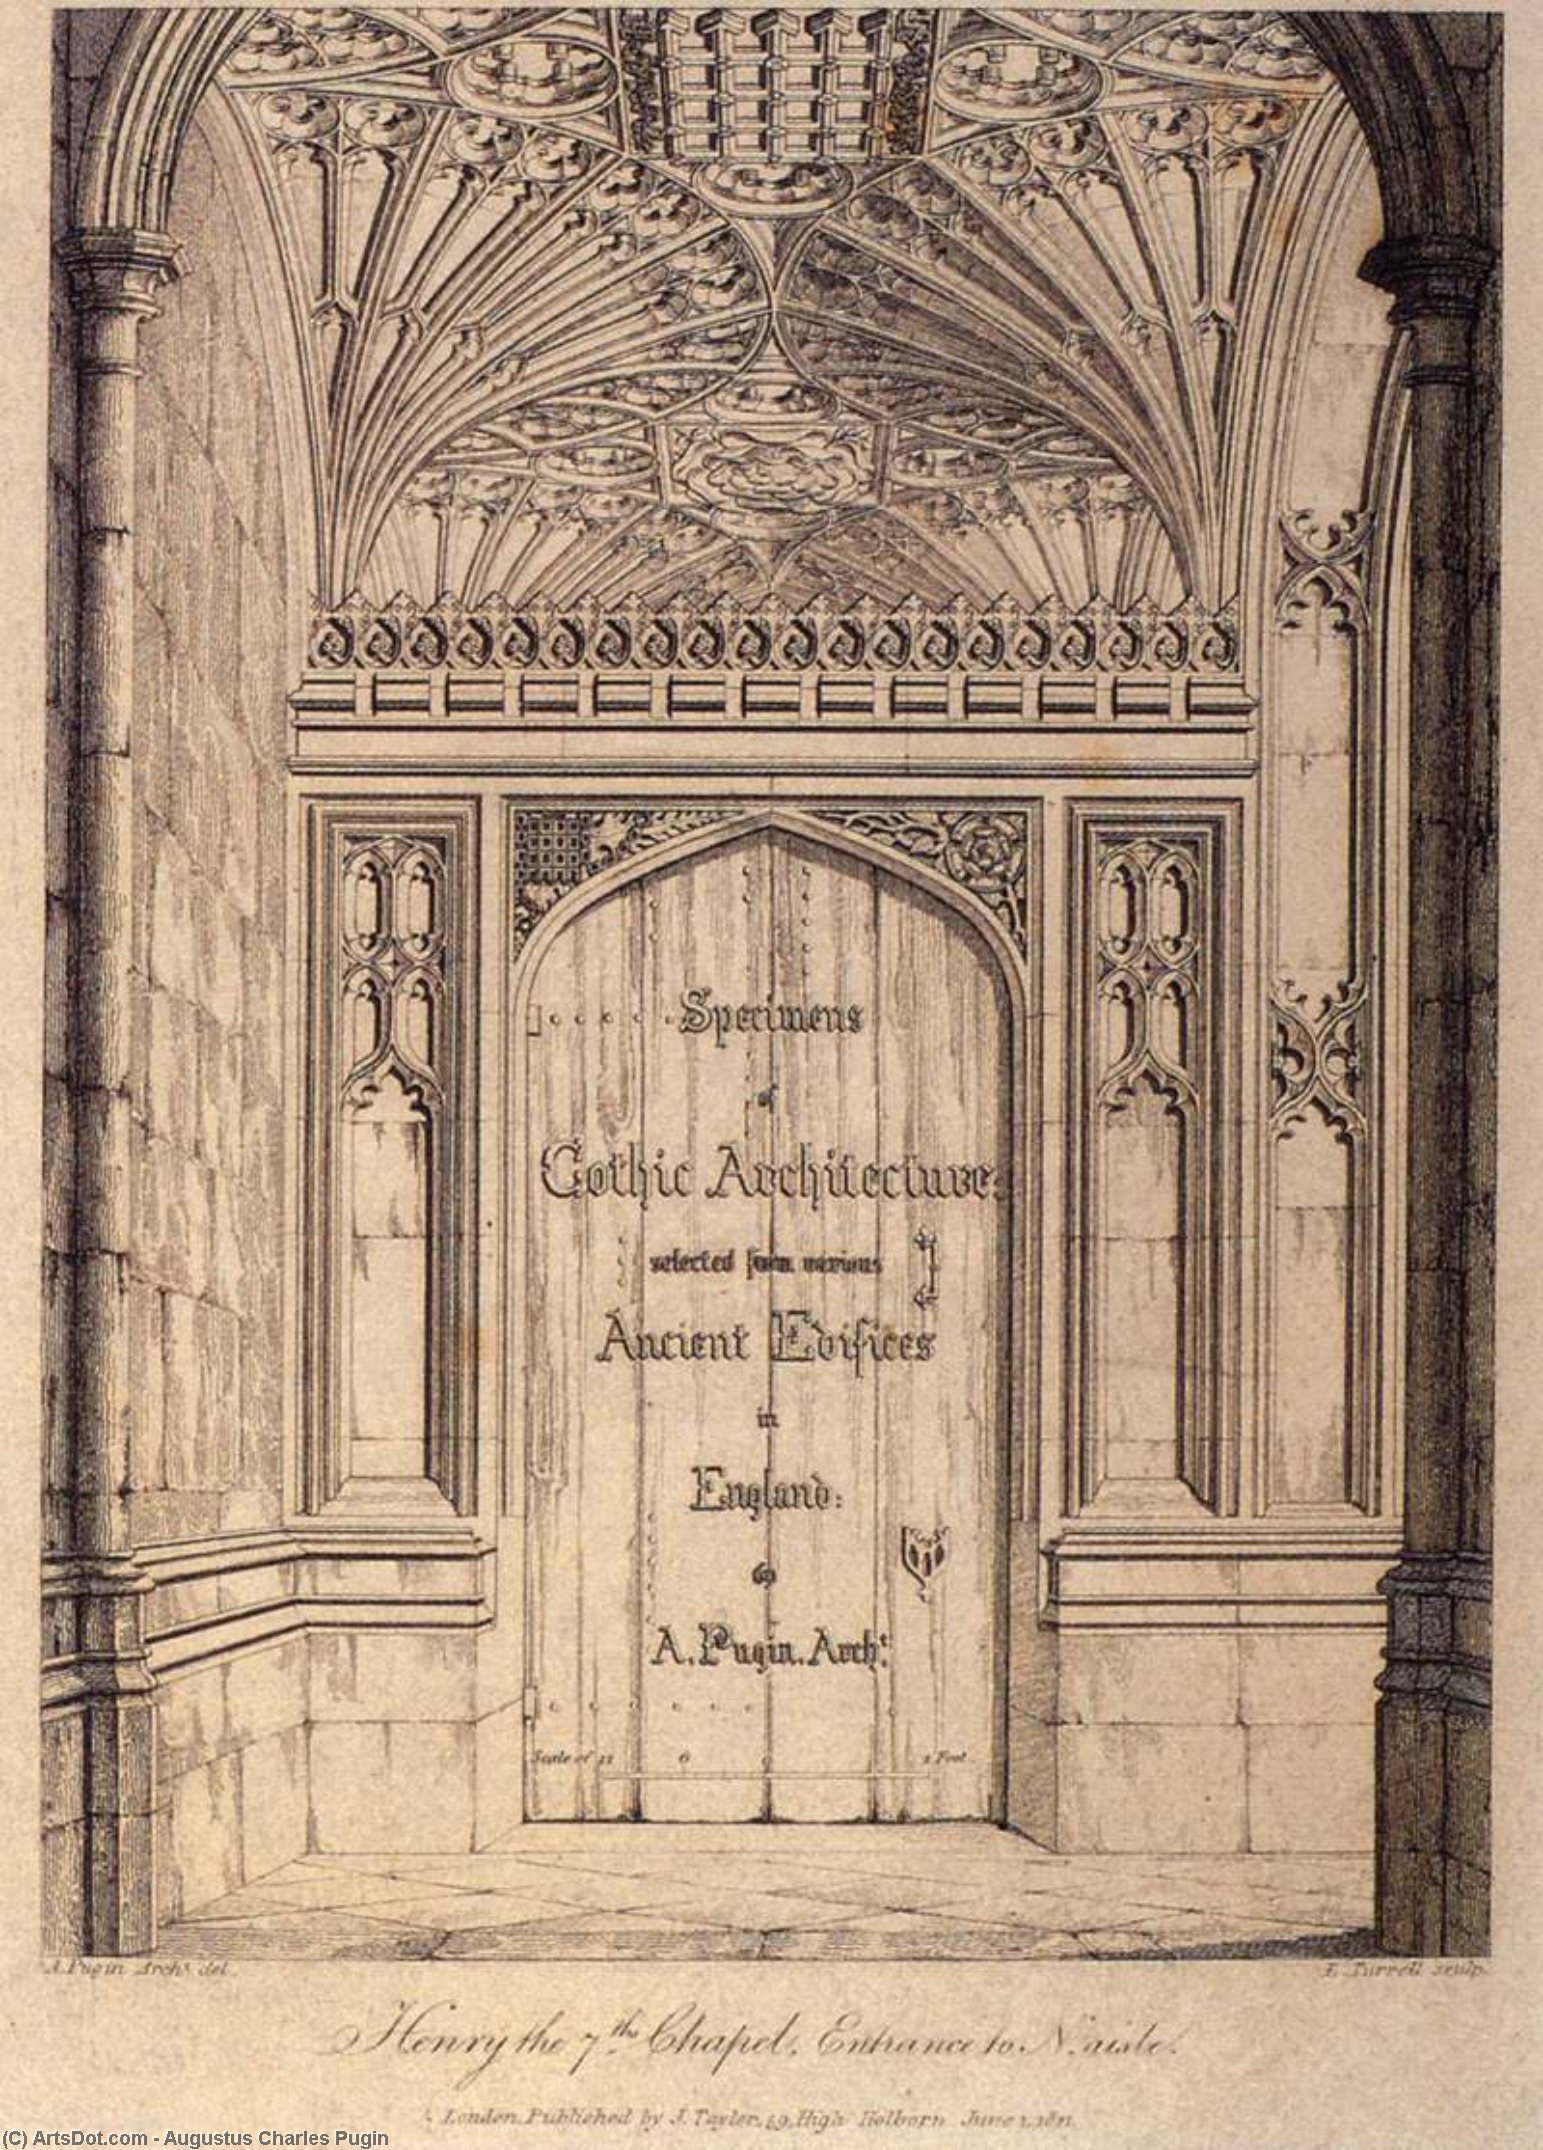 Specimens
of
Gothic Architecture:
selected from various
Ancient Edifices
in
England:
by
A. Pugin. Archt.
Scale of 12 6 1 Foot
A. Pugin Archt. del.
E. Turrell sculp.
Henry the 7.ths Chapel, Entrance to N. aisle.
London. Published by J. Taylor, 59, High Holborn June 1, 1821.
(C) ArtsDot.com - Augustus Charles Pugin